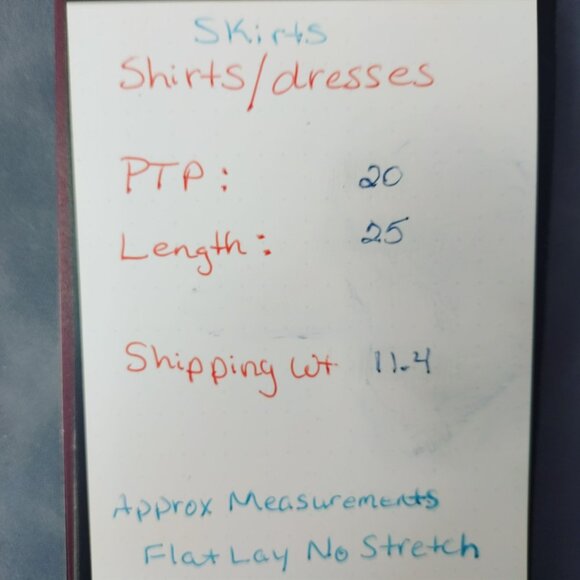 Skirts
Shirts/dresses
PTP: 20
Length: 25
Shipping wt 11.4
Approx Measurements
Flat Lay No Stretch